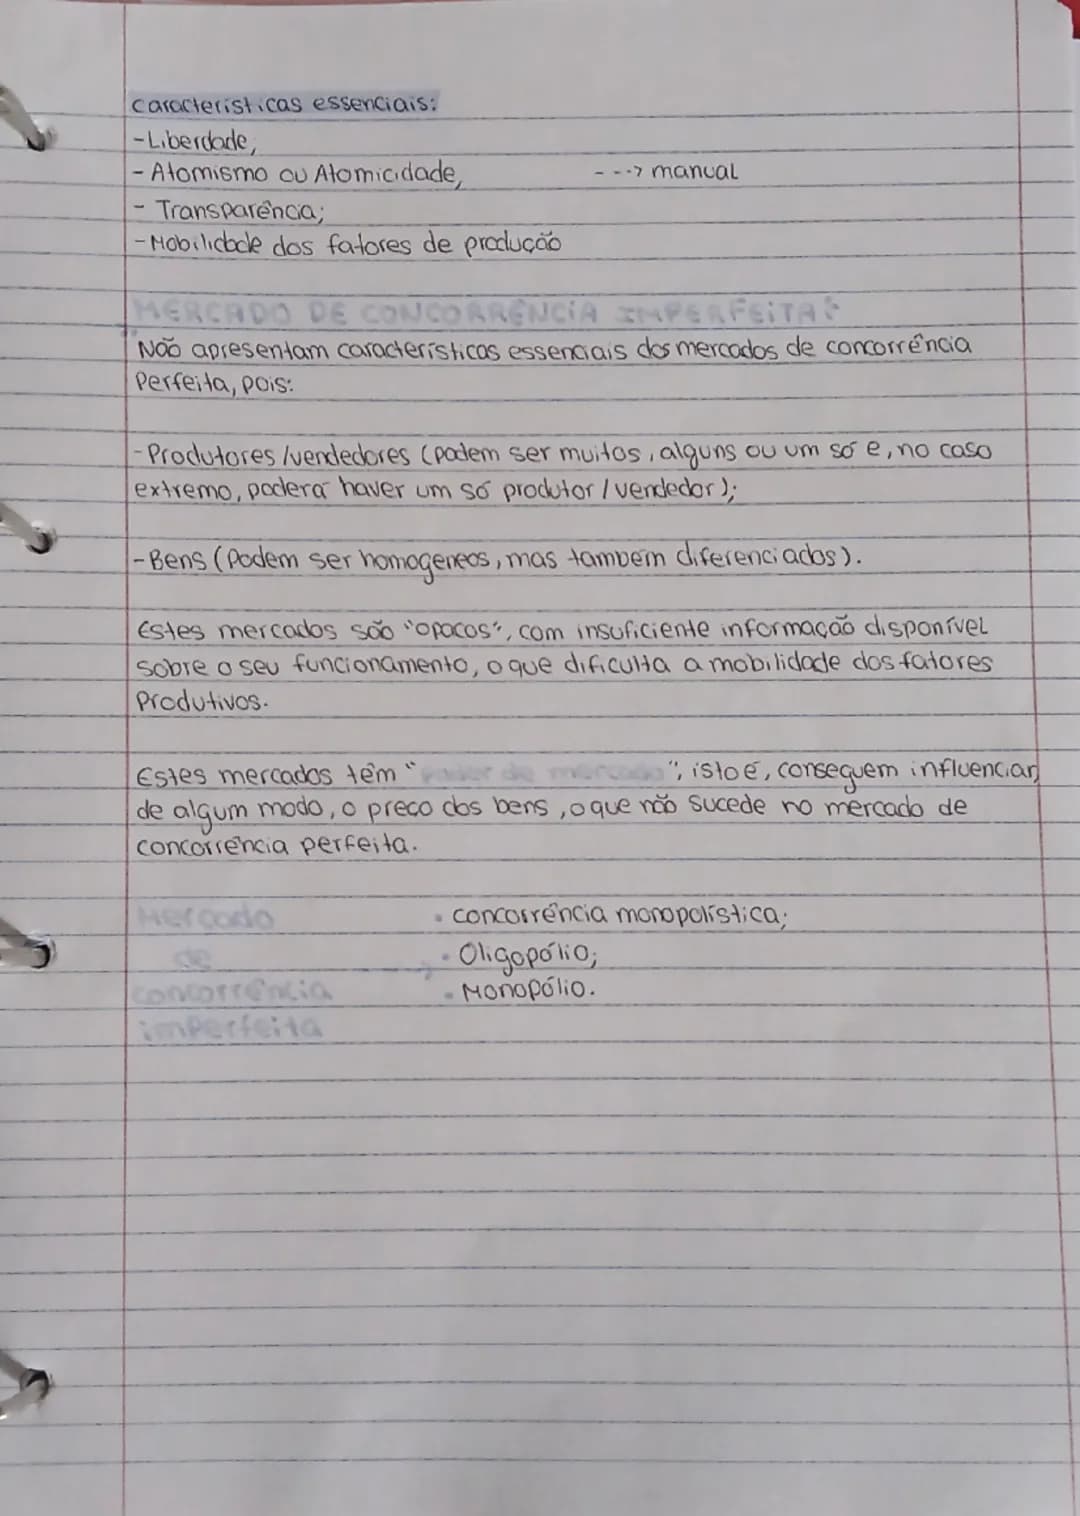 características essenciais:
-Liberdade,
- Atomismo ou Atomicidade, ---> manual
- Transparência;
-Mobilidade dos fatores de produção
MERCADO DE CONCORRÊNCIA IMPERFEITA:
Não apresentam características essenciais dos mercados de concorrência
Perfeita, pois:
-Produtores/vendedores (podem ser muitos, alguns ou um só e, no caso
extremo, poderá haver um só produtor/vendedor);
-Bens (Podem ser homogeneos, mas também diferenciados).
Estes mercados são "opacos", com insuficiente informação disponível
sobre o seu funcionamento, o que dificulta a mobilidade dos fatores
Produtivos.
Estes mercados têm "poder de mercado", isto é, conseguem influenciar,
de algum modo, o preço dos bens, o que não sucede no mercado de
concorrência perfeita.
Mercado
de
concorrência
imperfeita
---->
• concorrência monopolística;
• Oligopólio;
• Monopólio.